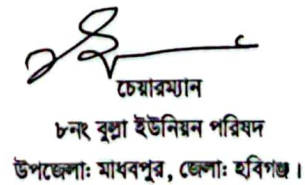 চেয়ারম্যান
৮নং বুল্লা ইউনিয়ন পরিষদ
উপজেলাঃ মাধবপুর, জেলাঃ হবিগঞ্জ।